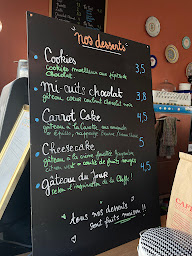 nos desserts
Cookies
cookies moelleux aux pépites de
chocolat
3,5
Mi-cuit chocolat
gâteau cœur coulant chocolat noir
3,8
Carrot Cake
4,5
gâteau à la carotte, aux amandes
Cheesecake
5
gâteau à la crème
citron vert + coulis de fruits rouges
Gâteau du Jour
4,5
selon l'inspiration de la Cheffe!
tous nos desserts
sont faits maison !!